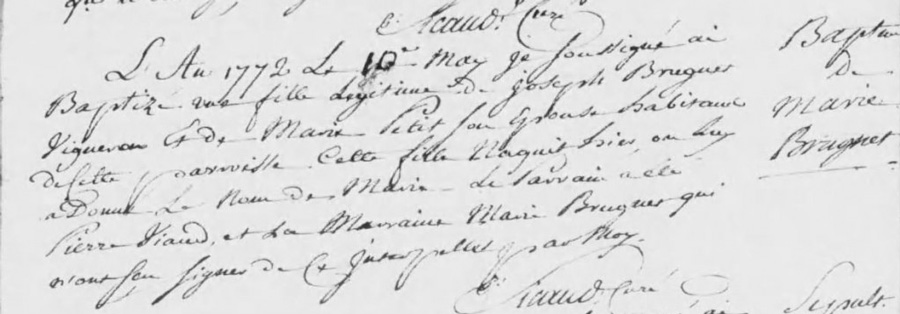 Curé
L'An 1772 Le 10e May je soussigné ai
Baptizé une fille legitime de joseph Brugnet
Vigneron Et de Marie Petit son Epouse habitans
de Cette parroisse Cette fille Naquit hier, on luy
a Donné Le Nom de Marie Le Parrain a eté
Pierre Viaud, et La Marraine Marie Brugnet qui
n'ont sçu signer de Ce Interpellés par Moy.
Curé
Baptme
de
Marie
Brugnet
Sepult.